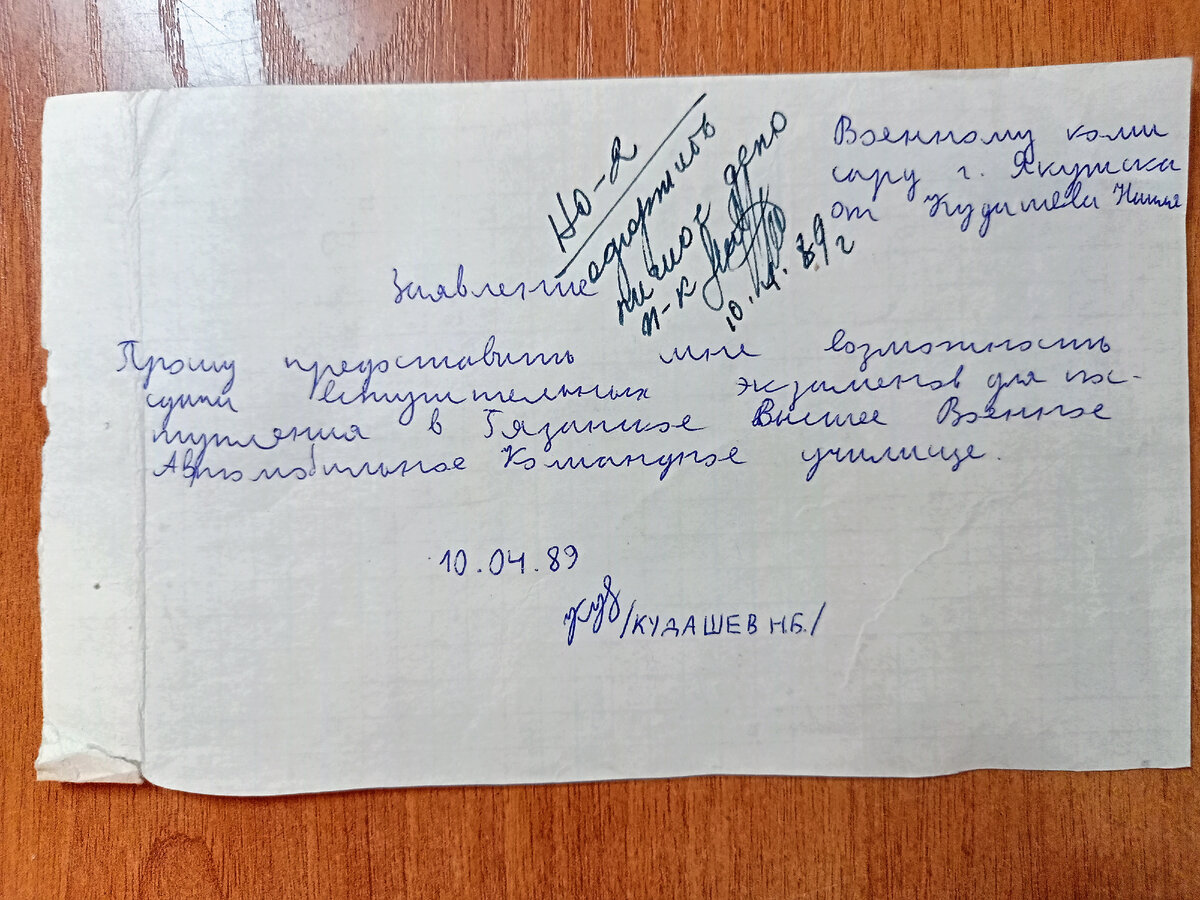 Военному коми
сару г. Якутска
от Кудашева Наиля
Но-2
оформить
личное дело
п-к
10.4.89 г
Заявление
Прошу предоставить мне возможность
сдачи вступительных экзаменов для пос-
тупления в Рязанское Высшее Военное
Автомобильное Командное училище.
10.04.89
/КУДАШЕВ Н.Б./